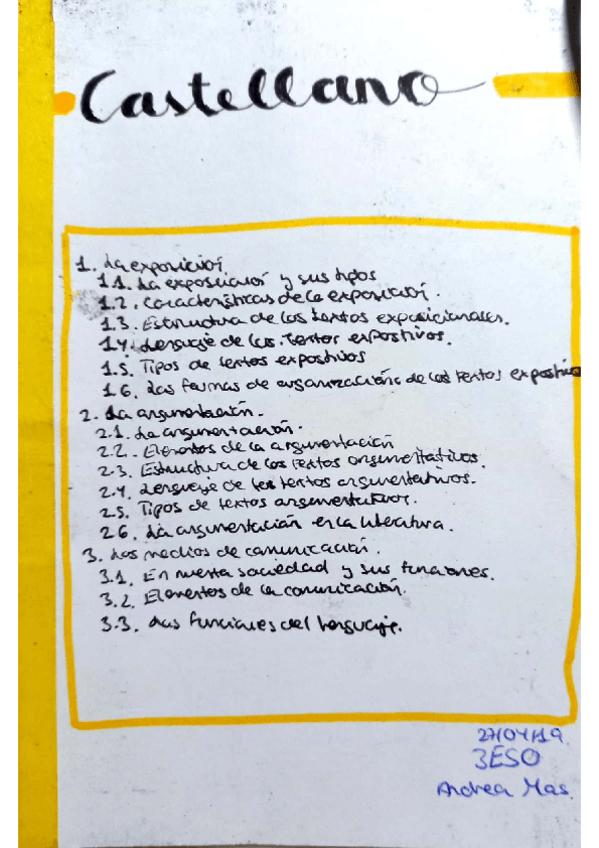 Castellano
1. La exposición
1.1. La exposición y sus tipos
1.2. Características de la exposición.
1.3. Estructura de los textos exposicionales.
1.4. Lenguaje de los textos expositivos.
1.5. Tipos de textos expositivos
1.6. Las formas de organización de los textos expositivo
2. La argumentación.
2.1. La argumentación.
2.2. Elementos de la argumentación
2.3. Estructura de los textos argumentativos.
2.4. Lenguaje de los textos argumentativos.
2.5. Tipos de textos argumentativos.
2.6. La argumentación en la literatura.
3. Los medios de comunicación.
3.1. En nuesta sociedad y sus funciones.
3.2. Elementos de la comunicación.
3.3. Las funciones del lenguaje.
27/04/19
3ESO
Andrea Mas